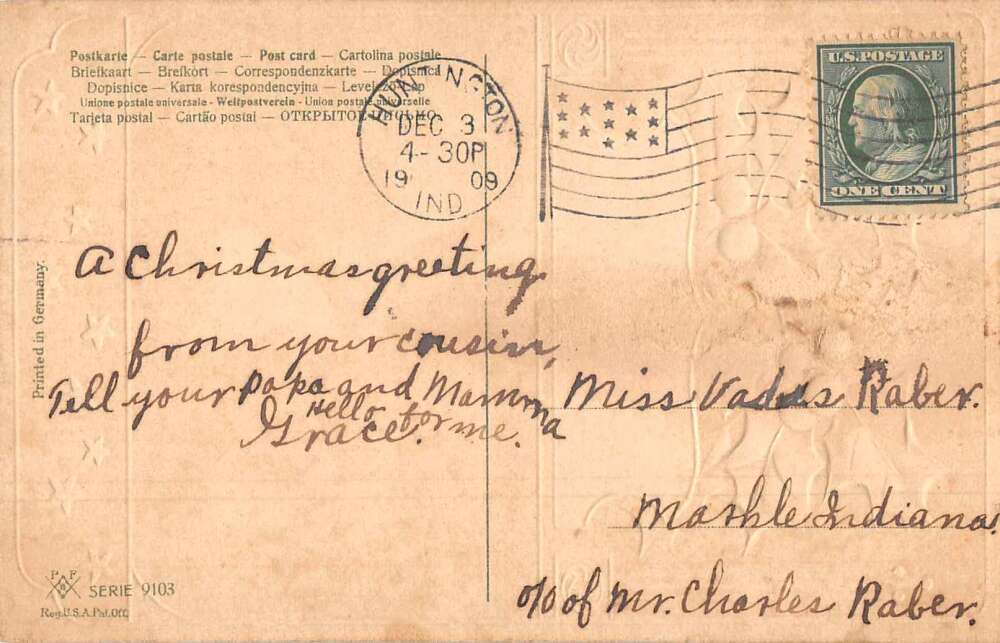 Postkarte — Carte postale — Post card — Cartolina postale
Briefkaart — Brefkort — Correspondenzkarte — Dopisnica
Dopisnice — Karta korespondencyjna —
Unione postale universale - Weltpostverein - Union postale universelle
Tarjeta postal — Cartão postal — ОТКРЫТОЕ ПИСЬМО
HUNTINGTON
DEC 3
4-30P
19 09
IND
U.S. POSTAGE
ONE CENT
A Christmas greeting
from your cousin,
Tell your papa and Mamma
Hello for me.
Grace.
Miss Raber.
Markle Indiana.
c/o of Mr. Charles Raber.
Printed in Germany.
P F
B
SERIE 9103
Reg. U.S.A. Pat. Off.